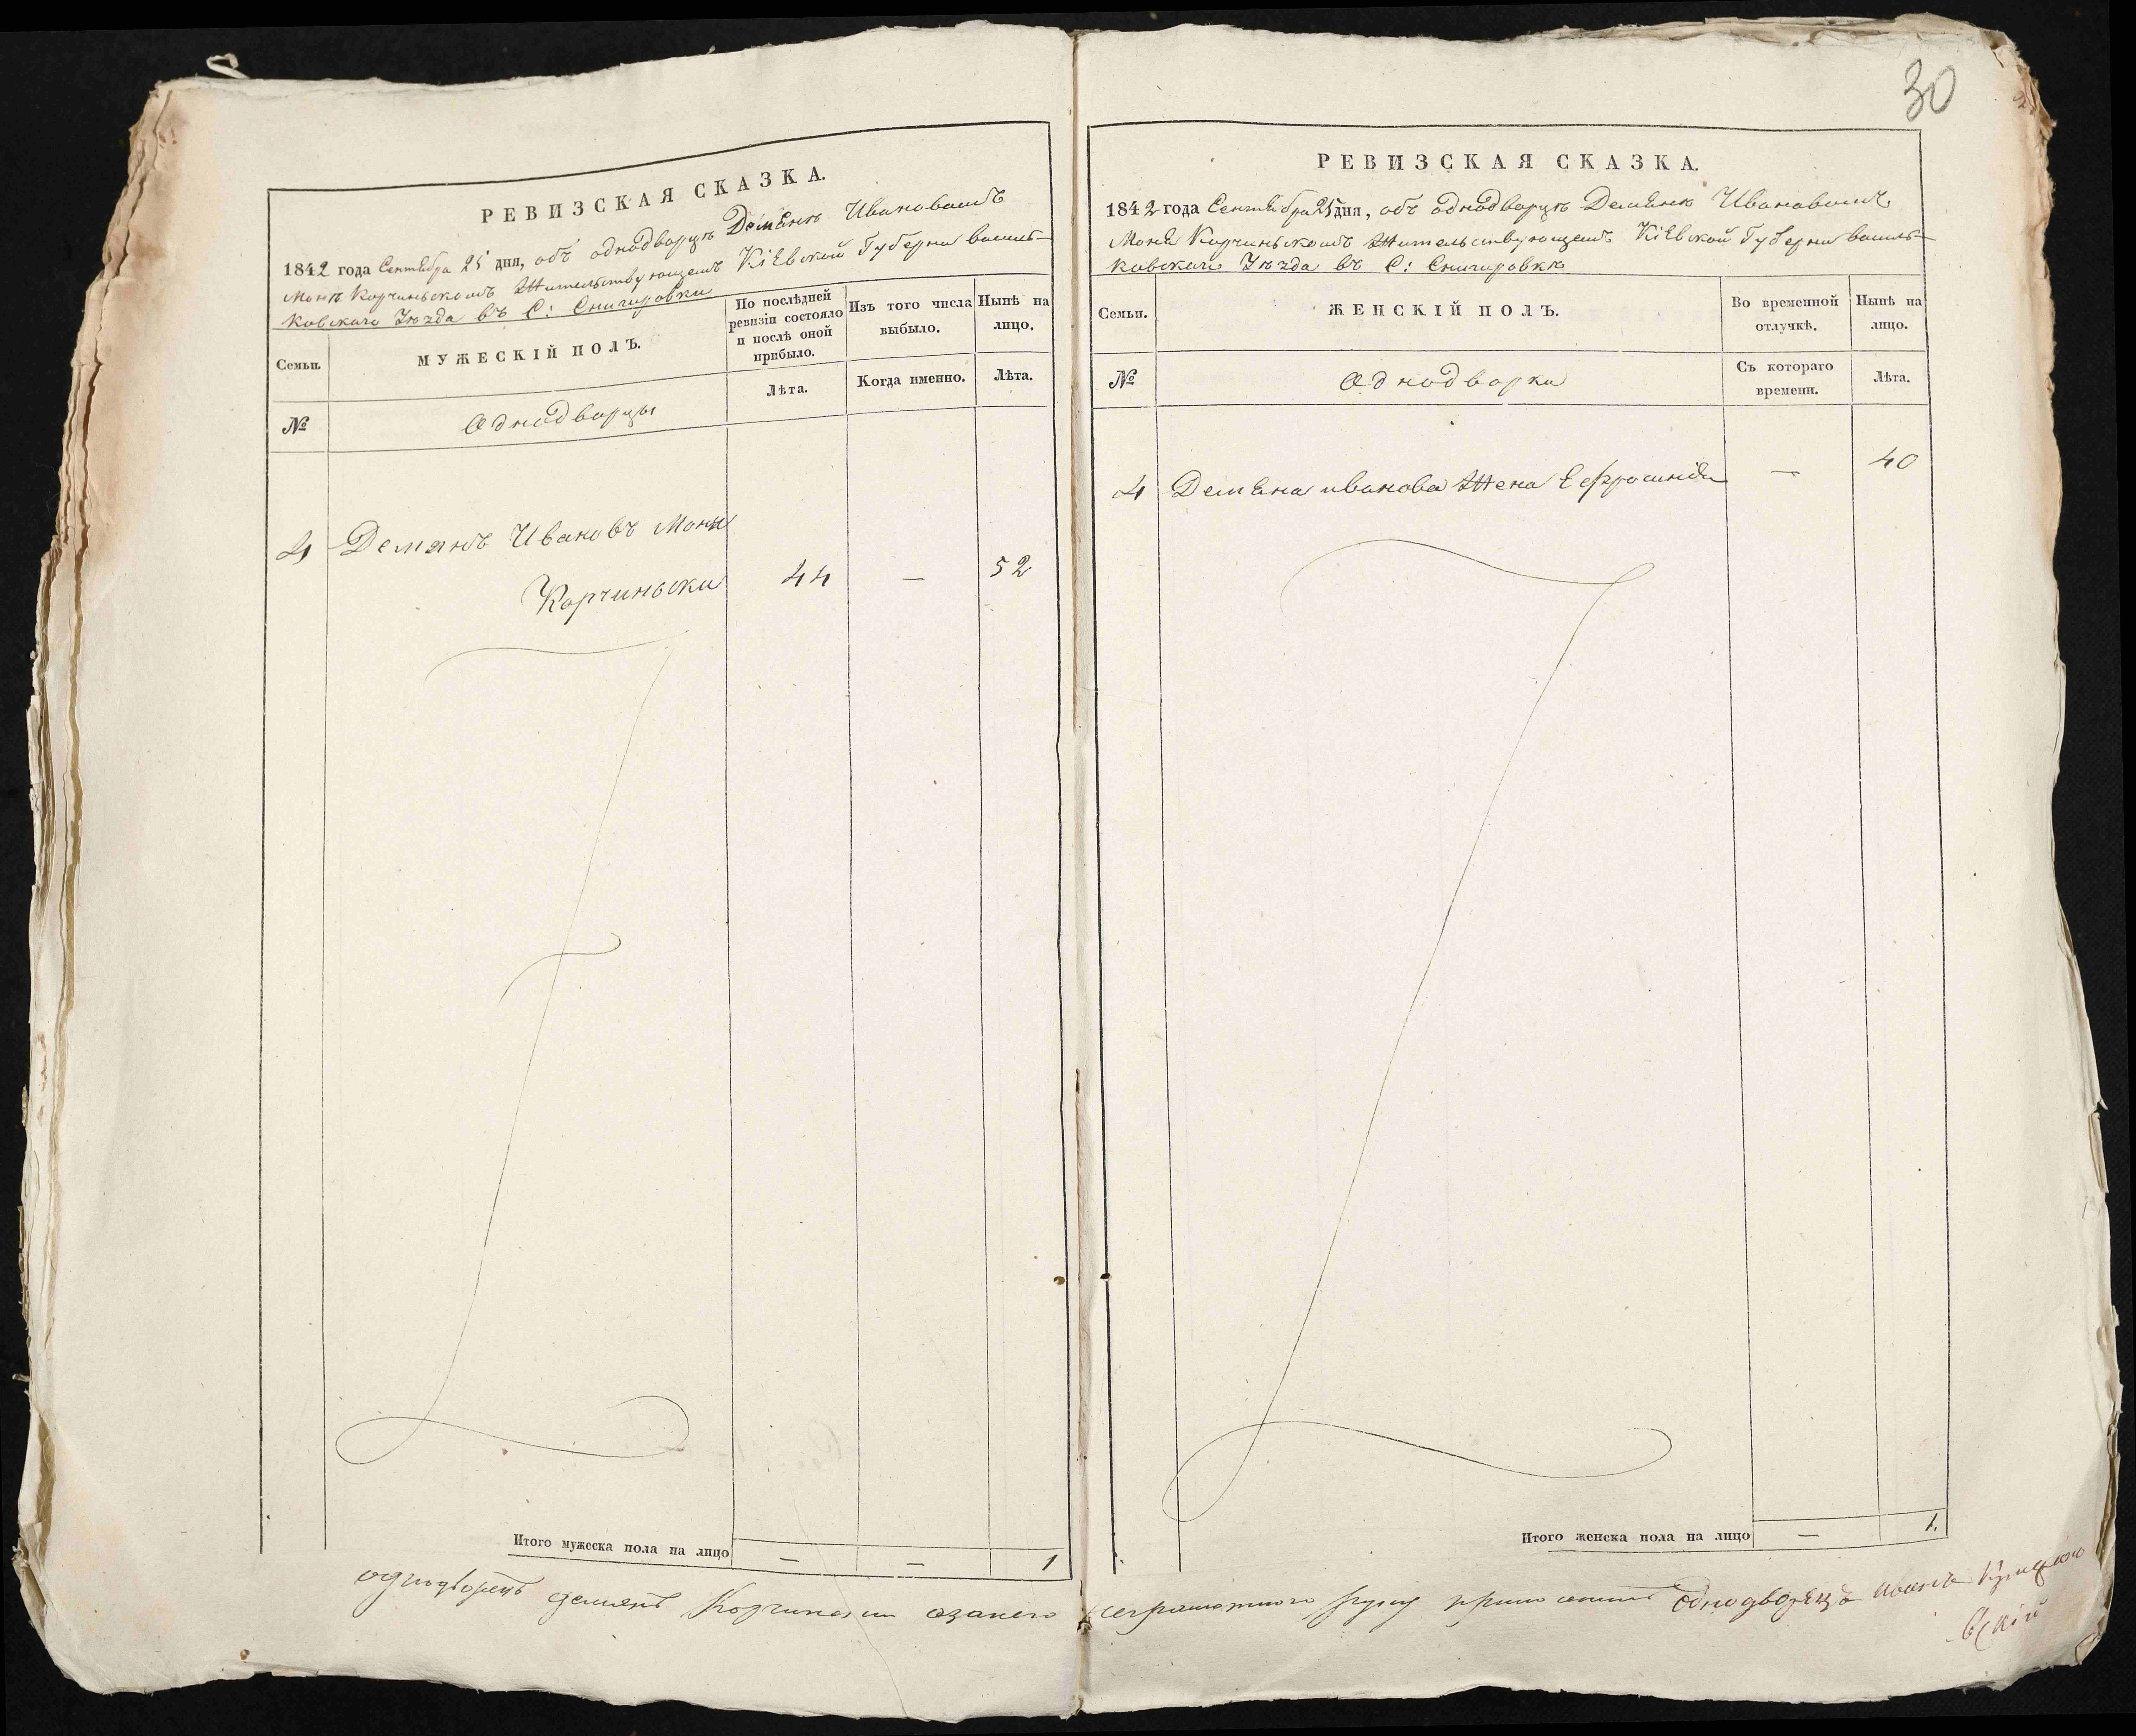 30
РЕВИЗСКАЯ СКАЗКА.
1842 года Сентября 25 дня, объ однодворцѣ Демянѣ Ивановомъ
Монѣ Корчиньскомъ Жительствующемъ Кіевской Губерни василь-
ковскаго Уѣзда въ С: Снигировки
Семьи.
МУЖЕСКІЙ ПОЛЪ.
По послѣдней ревизіи состояло и послѣ оной прибыло.
Изъ того числа выбыло.
Нынѣ на лицо.
№
Однодворцы
Лѣта.
Когда именно.
Лѣта.
4 Демянъ Ивановъ Моны
Корчиньски 44 — 52
Итого мужеска пола на лицо — — 1
РЕВИЗСКАЯ СКАЗКА.
1842 года Сентября 25 дня, объ однодворцѣ Демянѣ Ивановомъ
Моне Корчиньскомъ Жительствующемъ Кіевской Губерни василь-
ковскаго Уѣзда въ С: Снигировкѣ
Семьи.
ЖЕНСКІЙ ПОЛЪ.
Во временной отлучкѣ.
Нынѣ на лицо.
№
Однодворки
Съ котораго времени.
Лѣта.
4 Демяна иванова Жена Ефросиния — 40
Итого женска пола на лицо — 1.
однодворецъ демянъ Корчински азанего неграмотного руку приложилъ Однодворецъ Иванъ
вский